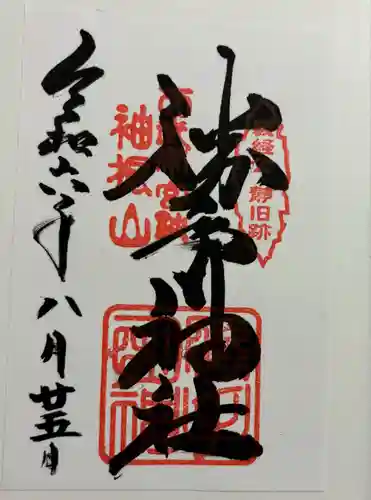 義経
静旧跡
勝手神社
袖振山
令和六年八月廿五日